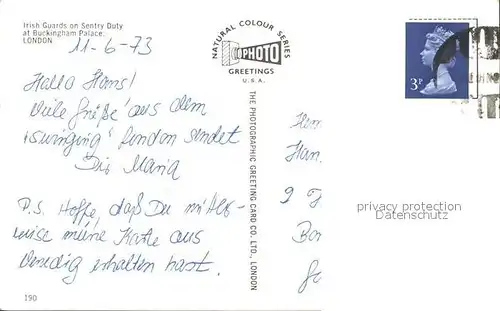 Irish Guards on Sentry Duty
at Buckingham Palace.
LONDON
11-6-73
Hallo Hans!
Viele Grüße aus dem
"swinging" London sendet
Dir Maria
P.S. Hoffe, daß Du
meine Karte aus
Venedig erhalten hast.
190
NATURAL COLOUR SERIES
PHOTO
GREETINGS
U.S.A.
THE PHOTOGRAPHIC GREETING CARD CO. LTD., LONDON
3P
Han
9
privacy protection
Datenschutz